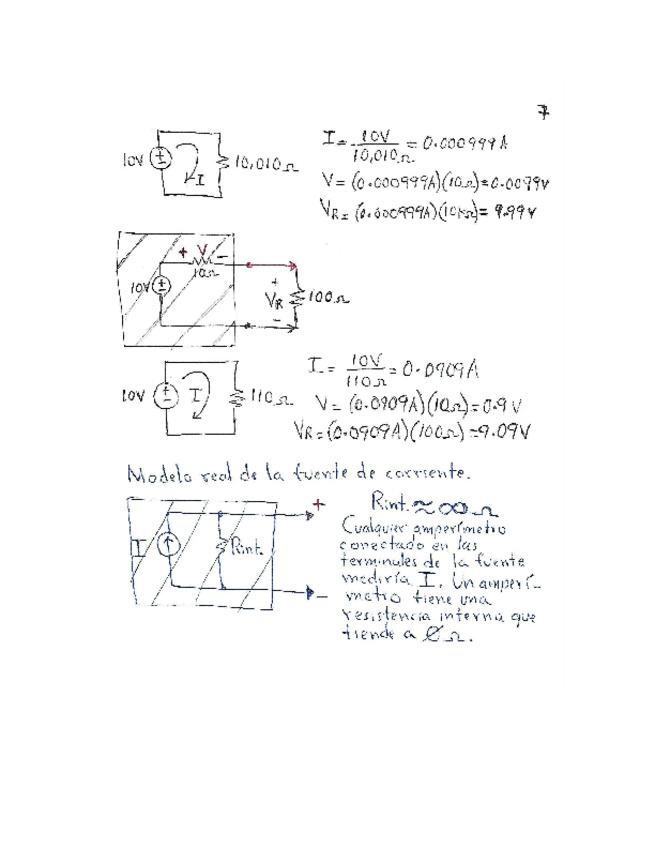 7
10V
I
10,010Ω
I = 10V / 10,010Ω = 0.000999A
V = (0.000999A)(10Ω) = 0.0099V
VR = (0.000999A)(10kΩ) = 9.99V
+ V -
10Ω
10V
+
VR
-
100Ω
10V
I
110Ω
I = 10V / 110Ω = 0.0909A
V = (0.0909A)(10Ω) = 0.9V
VR = (0.0909A)(100Ω) = 9.09V
Modelo real de la fuente de corriente.
I
Rint.
+
-
Rint. ≈ ∞ Ω
Cualquier amperímetro
conectado en las
terminales de la fuente
mediría I. Un amperí-
metro tiene una
resistencia interna que
tiende a 0Ω.